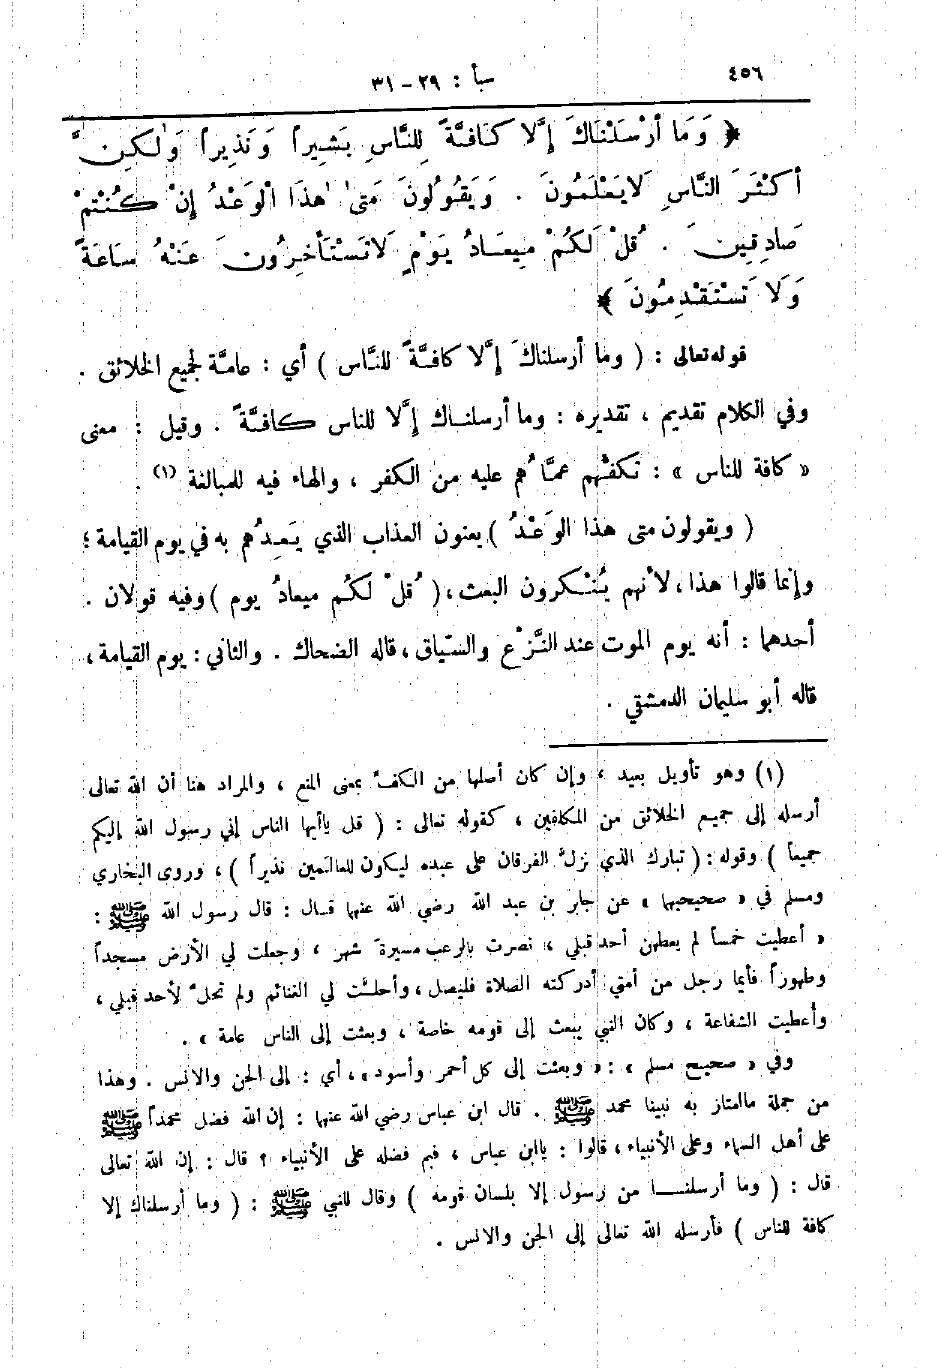 ٤٥٦
سبأ : ٢٩ – ٣١
﴿ وَمَا أَرْسَلْنَاكَ إِلَّا كَافَّةً لِلنَّاسِ بَشِيراً وَنَذِيراً وَلٰكِنَّ
أَكْثَرَ النَّاسِ لَايَعْلَمُونَ . وَيَقُولُونَ مَتىٰ هٰذَا الْوَعْدُ إِنْ كُنْتُمْ
صَادِقِينَ . قُلْ لَكُمْ مِيعَادُ يَوْمٍ لَاتَسْتَأْخِرُونَ عَنْهُ سَاعَةً
وَلَا تَسْتَقْدِمُونَ ﴾
قوله تعالى : ( وما أرسلناكَ إِلَّا كافَّةً للنَّاس ) أي : عامَّة لجميع الخلائق .
وفي الكلام تقديم ، تقديره : وما أرسلناك إِلَّا للناس كافَّةً . وقيل : معنى
« كافة للناس » : تكفُّهم عمَّا هُم عليه من الكفر ، والهاء فيه للمبالغة (١) .
( ويقولون متى هذا الوَعْدُ ) يعنون العذاب الذي يَعِدُهم به في يوم القيامة ؛
وإنما قالوا هذا ، لأنهم يُنْكرون البعث ، ( قُلْ لكُم ميعادُ يوم ) وفيه قولان .
أحدهما : أنه يوم الموت عند النَّزْع والسّياق ، قاله الضحاك . والثاني : يوم القيامة ،
قاله أبو سليمان الدمشقي .
(١) وهو تأويل بعيد ، وإن كان أصلها من الكفّ بمعنى المنع ، والمراد هنا أن الله تعالى
أرسله إلى جميع الخلائق من المكلفين ، كقوله تعالى : ( قل ياأيها الناس إني رسول الله إليكم
جميعاً ) وقوله : ( تبارك الذي نزلَّ الفرقان على عبده ليكون للعالَمين نذيراً ) ، وروى البخاري
ومسلم في « صحيحيها » عن جابر بن عبد الله رضي الله عنهما قال : قال رسول الله ﷺ :
« أعطيت خمساً لم يعطهن أحد قبلي ، نصرت بالرعب مسيرةَ شهر ، وجعلت لي الأرض مسجداً
وطهوراً فأيما رجل من أمتي أدركته الصلاة فليصل ، وأحلَّت لي الغنائم ولم تحلّ لأحد قبلي ،
وأعطيت الشفاعة ، وكان النبي يبعث إلى قومه خاصة ، وبعثت إلى الناس عامة » .
وفي « صحيح مسلم » : « وبعثت إلى كل أحمر وأسود » ، أي : إلى الجن والانس . وهذا
من جملة ماامتاز به نبينا محمد ﷺ . قال ابن عباس رضي الله عنهما : إن الله فضل محمداً ﷺ
على أهل السماء وعلى الأنبياء ، قالوا : ياابن عباس ، فبم فضله على الأنبياء ؟ قال : إن الله تعالى
قال : ( وما أرسلنا من رسول إلا بلسان قومه ) وقال للنبي ﷺ : ( وما أرسلناك إلا
كافة للناس ) فأرسله الله تعالى إلى الجن والانس .